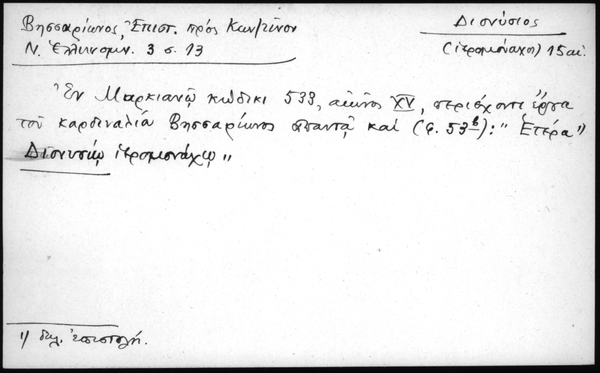 Βησσαρίωνος, Ἐπιστ. πρὸς Κων/τῖνον
Ν. Ἑλληνομν. 3 σ. 13
Διονύσιος
(ἱερομόναχος) 15 αἰ.
Ἐν Μαρκιανῷ κώδικι 533, αἰῶνος XV, περιέχοντι ἔργα
τοῦ καρδιναλίου Βησσαρίωνος ἀπαντᾷ καὶ (φ. 53β): "Ἑτέρα 1)
Διονυσίῳ ἱερομονάχῳ"
1) δηλ. ἐπιστολή.